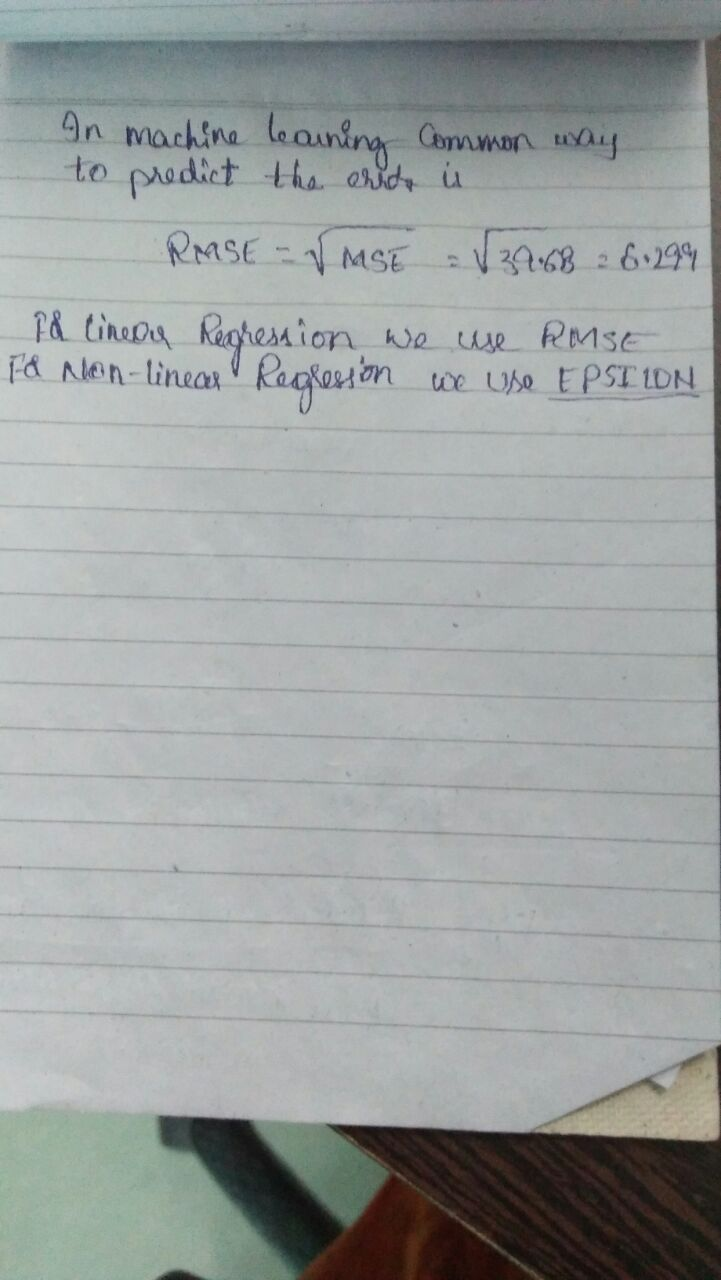 In machine learning Common way
to predict the error is
RMSE = √MSE = √39.68 = 6.299
For linear Regression we use RMSE
For Non-linear Regression we use EPSILON